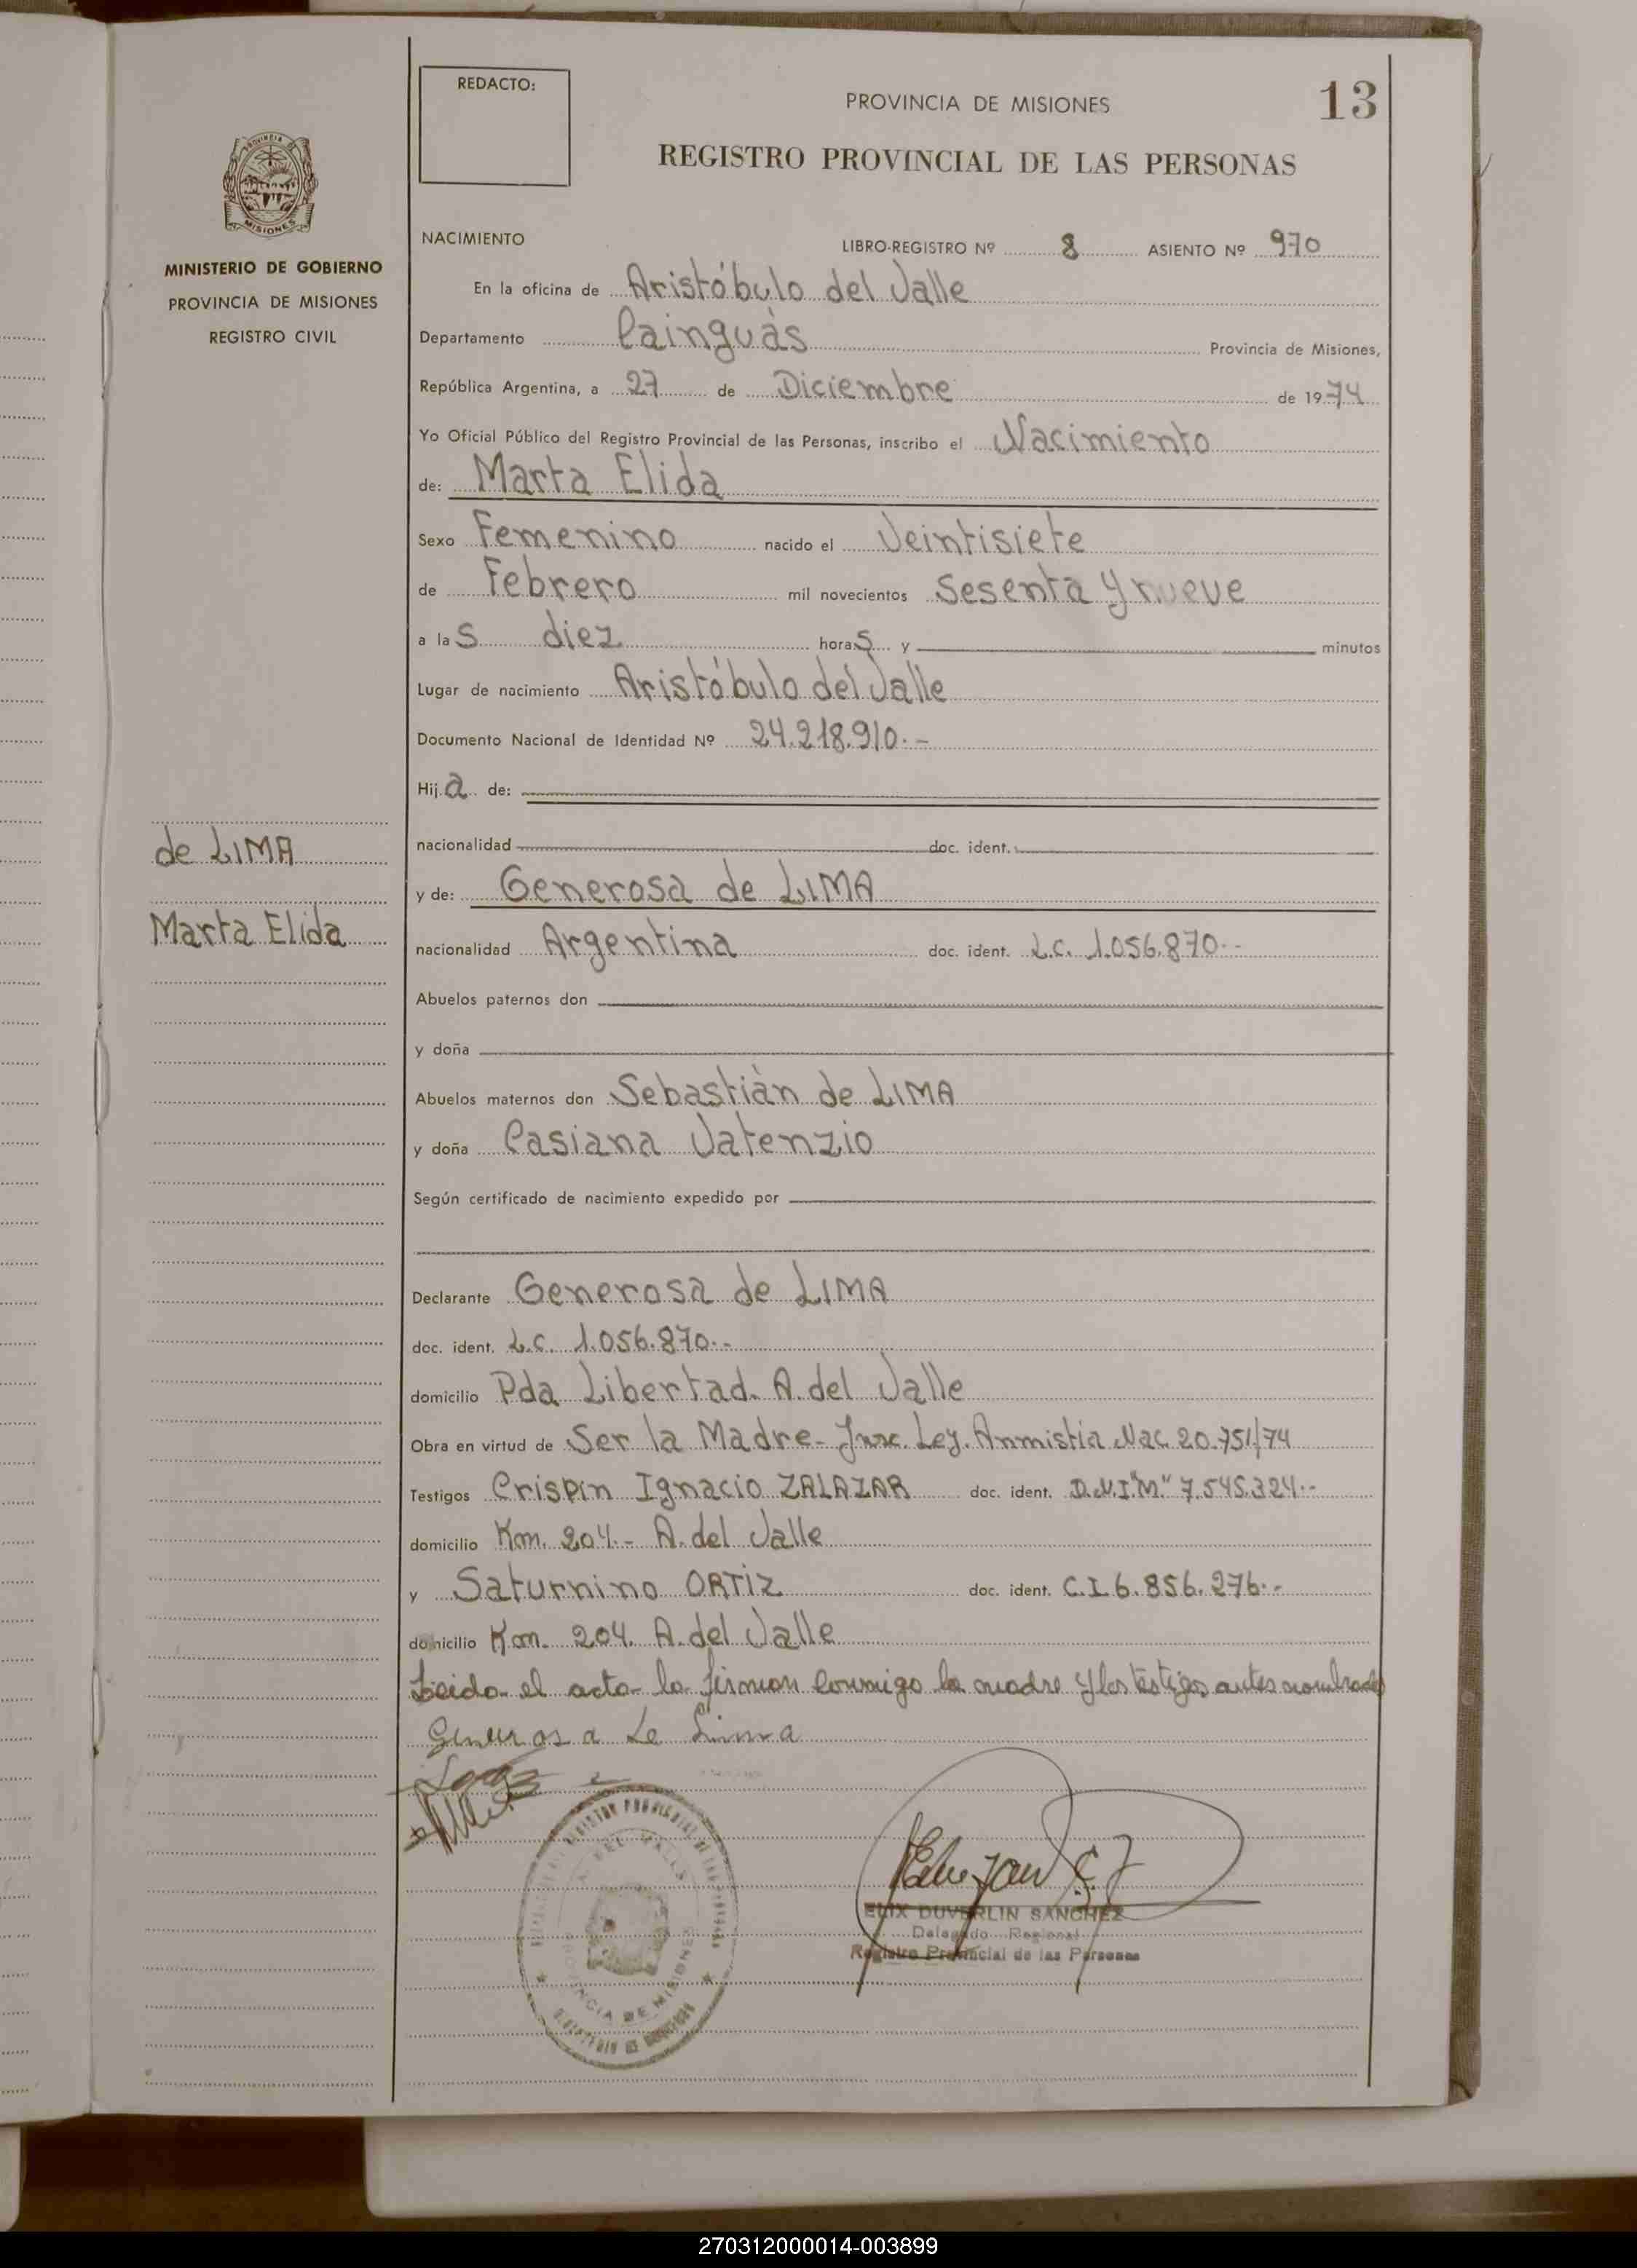 REDACTO:
PROVINCIA DE MISIONES
13
REGISTRO PROVINCIAL DE LAS PERSONAS
MISIONES
MINISTERIO DE GOBIERNO
PROVINCIA DE MISIONES
REGISTRO CIVIL
NACIMIENTO LIBRO-REGISTRO Nº 8 ASIENTO Nº 970
En la oficina de Aristóbulo del Valle
Departamento Cainguás Provincia de Misiones,
República Argentina, a 27 de Diciembre de 1974
Yo Oficial Público del Registro Provincial de las Personas, inscribo el Nacimiento
de: Marta Elida
Sexo Femenino nacido el Veintisiete
de Febrero mil novecientos Sesenta y nueve
a las diez horas y minutos
Lugar de nacimiento Aristóbulo del Valle
Documento Nacional de Identidad Nº 24.218.910.-
Hija de:
nacionalidad doc. ident.
y de: Generosa de LIMA
nacionalidad Argentina doc. ident. L.C. 1.056.870.-
Abuelos paternos don
y doña
Abuelos maternos don Sebastiàn de LIMA
y doña Casiana Vatenzio
Según certificado de nacimiento expedido por
Declarante Generosa de LIMA
doc. ident. L.C. 1.056.870.-
domicilio Pda Libertad. A. del Valle
Obra en virtud de Ser la Madre- Insc. Ley. Anmistia Nac. 20.751/74
Testigos Crispin Ignacio ZALAZAR doc. ident. D.N.I "M" 7.545.324.-
domicilio Km. 204.- A. del Valle
y Saturnino ORTIZ doc. ident. C.I 6.856.276.-
domicilio Km. 204. A. del Valle
Leido el acta la firman conmigo la madre y los testigos antes nombrados
Generosa de Lima
de LIMA
Marta Elida
ELIX DUVERLIN SANCHEZ
Delegado Regional
Registro Provincial de las Personas
PROVINCIA DE MISIONES
270312000014-003899